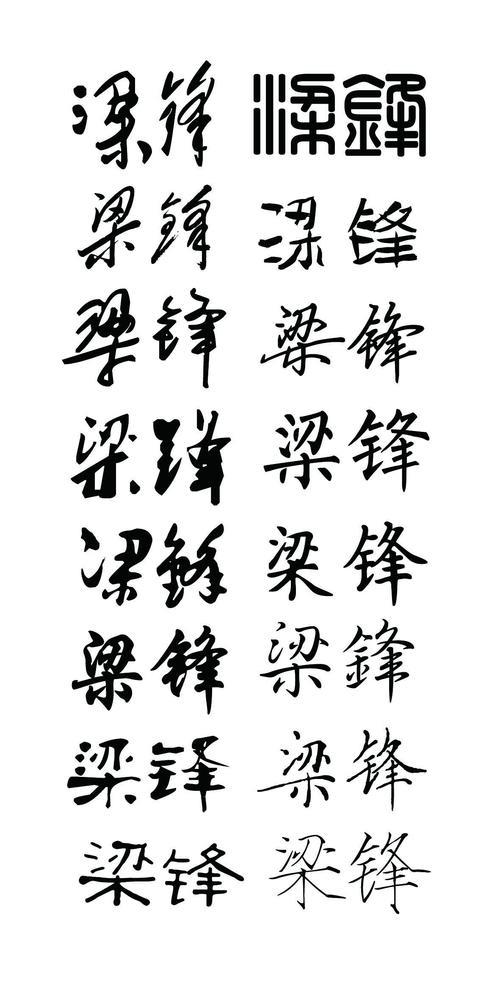 梁鋒 梁鋒
梁鋒 梁锋
梁锋 梁锋
梁锋 梁锋
梁鋒 梁锋
梁锋 梁鋒
梁锋 梁锋
梁锋 梁锋